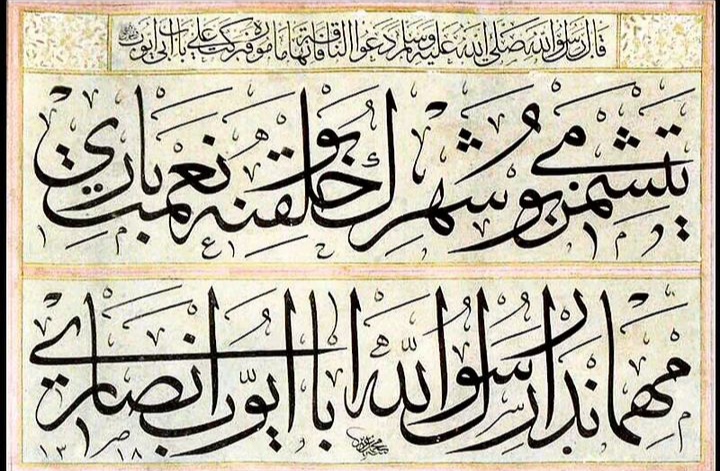 قال رسول الله صلى الله عليه وسلم دعوا الناقة فانها مامورة فبركت على باب ابى ايوب
يتشمز مي بو شهرك خلقنه بو نعمت باري
مهماندار رسول الله ابا ايوب انصاري
١٣١٨